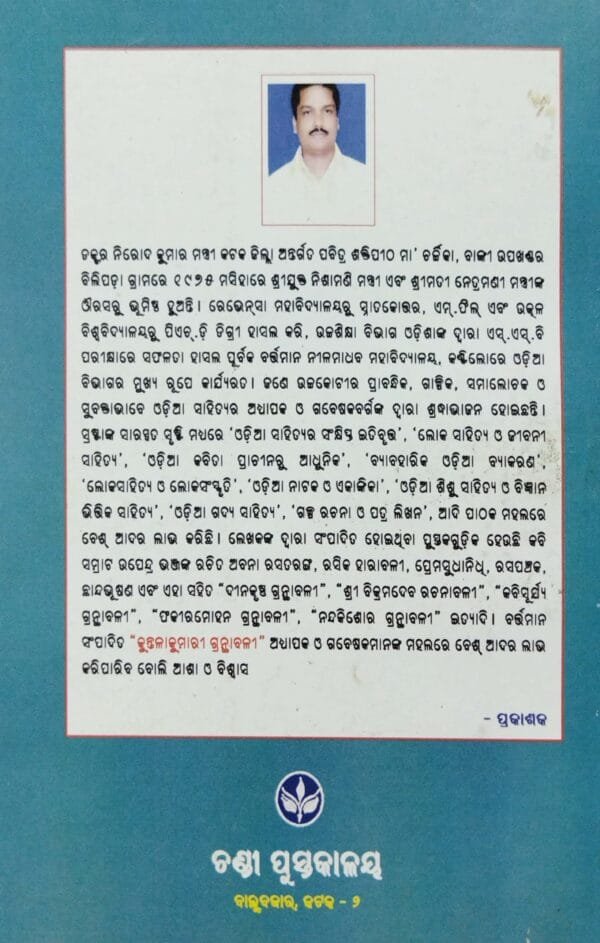 ଡକ୍ଟର ନିରୋଦ କୁମାର ମନ୍ତ୍ରୀ କଟକ ଜିଲ୍ଲା ଅନ୍ତର୍ଗତ ପବିତ୍ର ଶକ୍ତିପୀଠ ମା’ ଚର୍ଚ୍ଚିକା, ବାଙ୍କୀ ଉପଖଣ୍ଡର
ବିଲିପଡ଼ା ଗ୍ରାମରେ ୧୯୭୫ ମସିହାରେ ଶ୍ରୀଯୁକ୍ତ ନିଶାମଣି ମନ୍ତ୍ରୀ ଏବଂ ଶ୍ରୀମତୀ ନେତ୍ରମଣୀ ମନ୍ତ୍ରୀଙ୍କ
ଔରସରୁ ଭୂମିଷ୍ଠ ହୁଅନ୍ତି। ରେଭେନ୍ସା ମହାବିଦ୍ୟାଳୟରୁ ସ୍ନାତକୋତ୍ତର, ଏମ୍.ଫିଲ୍ ଏବଂ ଉତ୍କଳ
ବିଶ୍ୱବିଦ୍ୟାଳୟରୁ ପିଏଚ୍.ଡ଼ି ଡିଗ୍ରୀ ହାସଲ କରି, ଉଚ୍ଚଶିକ୍ଷା ବିଭାଗ ଓଡ଼ିଶାଙ୍କ ଦ୍ୱାରା ଏସ୍.ଏସ୍.ବି
ପରୀକ୍ଷାରେ ସଫଳତା ହାସଲ ପୂର୍ବକ ବର୍ତ୍ତମାନ ନୀଳମାଧବ ମହାବିଦ୍ୟାଳୟ, କଣ୍ଟିଲୋରେ ଓଡ଼ିଆ
ବିଭାଗର ମୁଖ୍ୟ ରୂପେ କାର୍ଯ୍ୟରତ। ଜଣେ ଉଚ୍ଚକୋଟୀର ପ୍ରାବନ୍ଧିକ, ଗାଳ୍ପିକ, ସମାଲୋଚକ ଓ
ସୁବକ୍ତାଭାବେ ଓଡ଼ିଆ ସାହିତ୍ୟର ଅଧ୍ୟାପକ ଓ ଗବେଷକବର୍ଗଙ୍କ ଦ୍ୱାରା ଶ୍ରଦ୍ଧାଭାଜନ ହୋଇଛନ୍ତି।
ସ୍ରଷ୍ଟାଙ୍କ ସାରସ୍ୱତ ସୃଷ୍ଟି ମଧ୍ୟରେ ‘ଓଡ଼ିଆ ସାହିତ୍ୟର ସଂକ୍ଷିପ୍ତ ଇତିବୃତ୍ତ’, ‘ଲୋକ ସାହିତ୍ୟ ଓ ଜୀବନୀ
ସାହିତ୍ୟ’, ‘ଓଡ଼ିଆ କବିତା ପ୍ରାଚୀନରୁ ଆଧୁନିକ’, ‘ବ୍ୟାବହାରିକ ଓଡ଼ିଆ ବ୍ୟାକରଣ’,
‘ଲୋକସାହିତ୍ୟ ଓ ଲୋକସଂସ୍କୃତି’, ‘ଓଡ଼ିଆ ନାଟକ ଓ ଏକାଙ୍କିକା’, ‘ଓଡ଼ିଆ ଶିଶୁ ସାହିତ୍ୟ ଓ ବିଜ୍ଞାନ
ଭିତ୍ତିକ ସାହିତ୍ୟ’, ‘ଓଡ଼ିଆ ଗଦ୍ୟ ସାହିତ୍ୟ’, ‘ଗଳ୍ପ ରଚନା ଓ ପତ୍ର ଲିଖନ’, ଆଦି ପାଠକ ମହଲରେ
ବେଶ୍ ଆଦର ଲାଭ କରିଛି। ଲେଖକଙ୍କ ଦ୍ୱାରା ସଂପାଦିତ ହୋଇଥିବା ପୁସ୍ତକଗୁଡ଼ିକ ହେଉଛି କବି
ସମ୍ରାଟ ଉପେନ୍ଦ୍ର ଭଞ୍ଜଙ୍କ ରଚିତ ଅବନା ରସତରଙ୍ଗ, ରସିକ ହାରାବଳୀ, ପ୍ରେମସୁଧାନିଧି, ରସପଞ୍ଚକ,
ଛାନ୍ଦଭୂଷଣ ଏବଂ ଏହା ସହିତ “ଦୀନକୃଷ୍ଣ ଗ୍ରନ୍ଥାବଳୀ”, “ଶ୍ରୀ ବିକ୍ରମଦେବ ରଚନାବଳୀ”, “କବିସୂର୍ଯ୍ୟ
ଗ୍ରନ୍ଥାବଳୀ”, “ଫକୀରମୋହନ ଗ୍ରନ୍ଥାବଳୀ”, “ନନ୍ଦକିଶୋର ଗ୍ରନ୍ଥାବଳୀ” ଇତ୍ୟାଦି। ବର୍ତ୍ତମାନ
ସଂପାଦିତ “କୁନ୍ତଳାକୁମାରୀ ଗ୍ରନ୍ଥାବଳୀ” ଅଧ୍ୟାପକ ଓ ଗବେଷକମାନଙ୍କ ମହଲରେ ବେଶ୍ ଆଦର ଲାଭ
କରିପାରିବ ବୋଲି ଆଶା ଓ ବିଶ୍ୱାସ
- ପ୍ରକାଶକ
ଚଣ୍ଡୀ ପୁସ୍ତକାଳୟ
ବାଲୁବଜାର, କଟକ - ୨